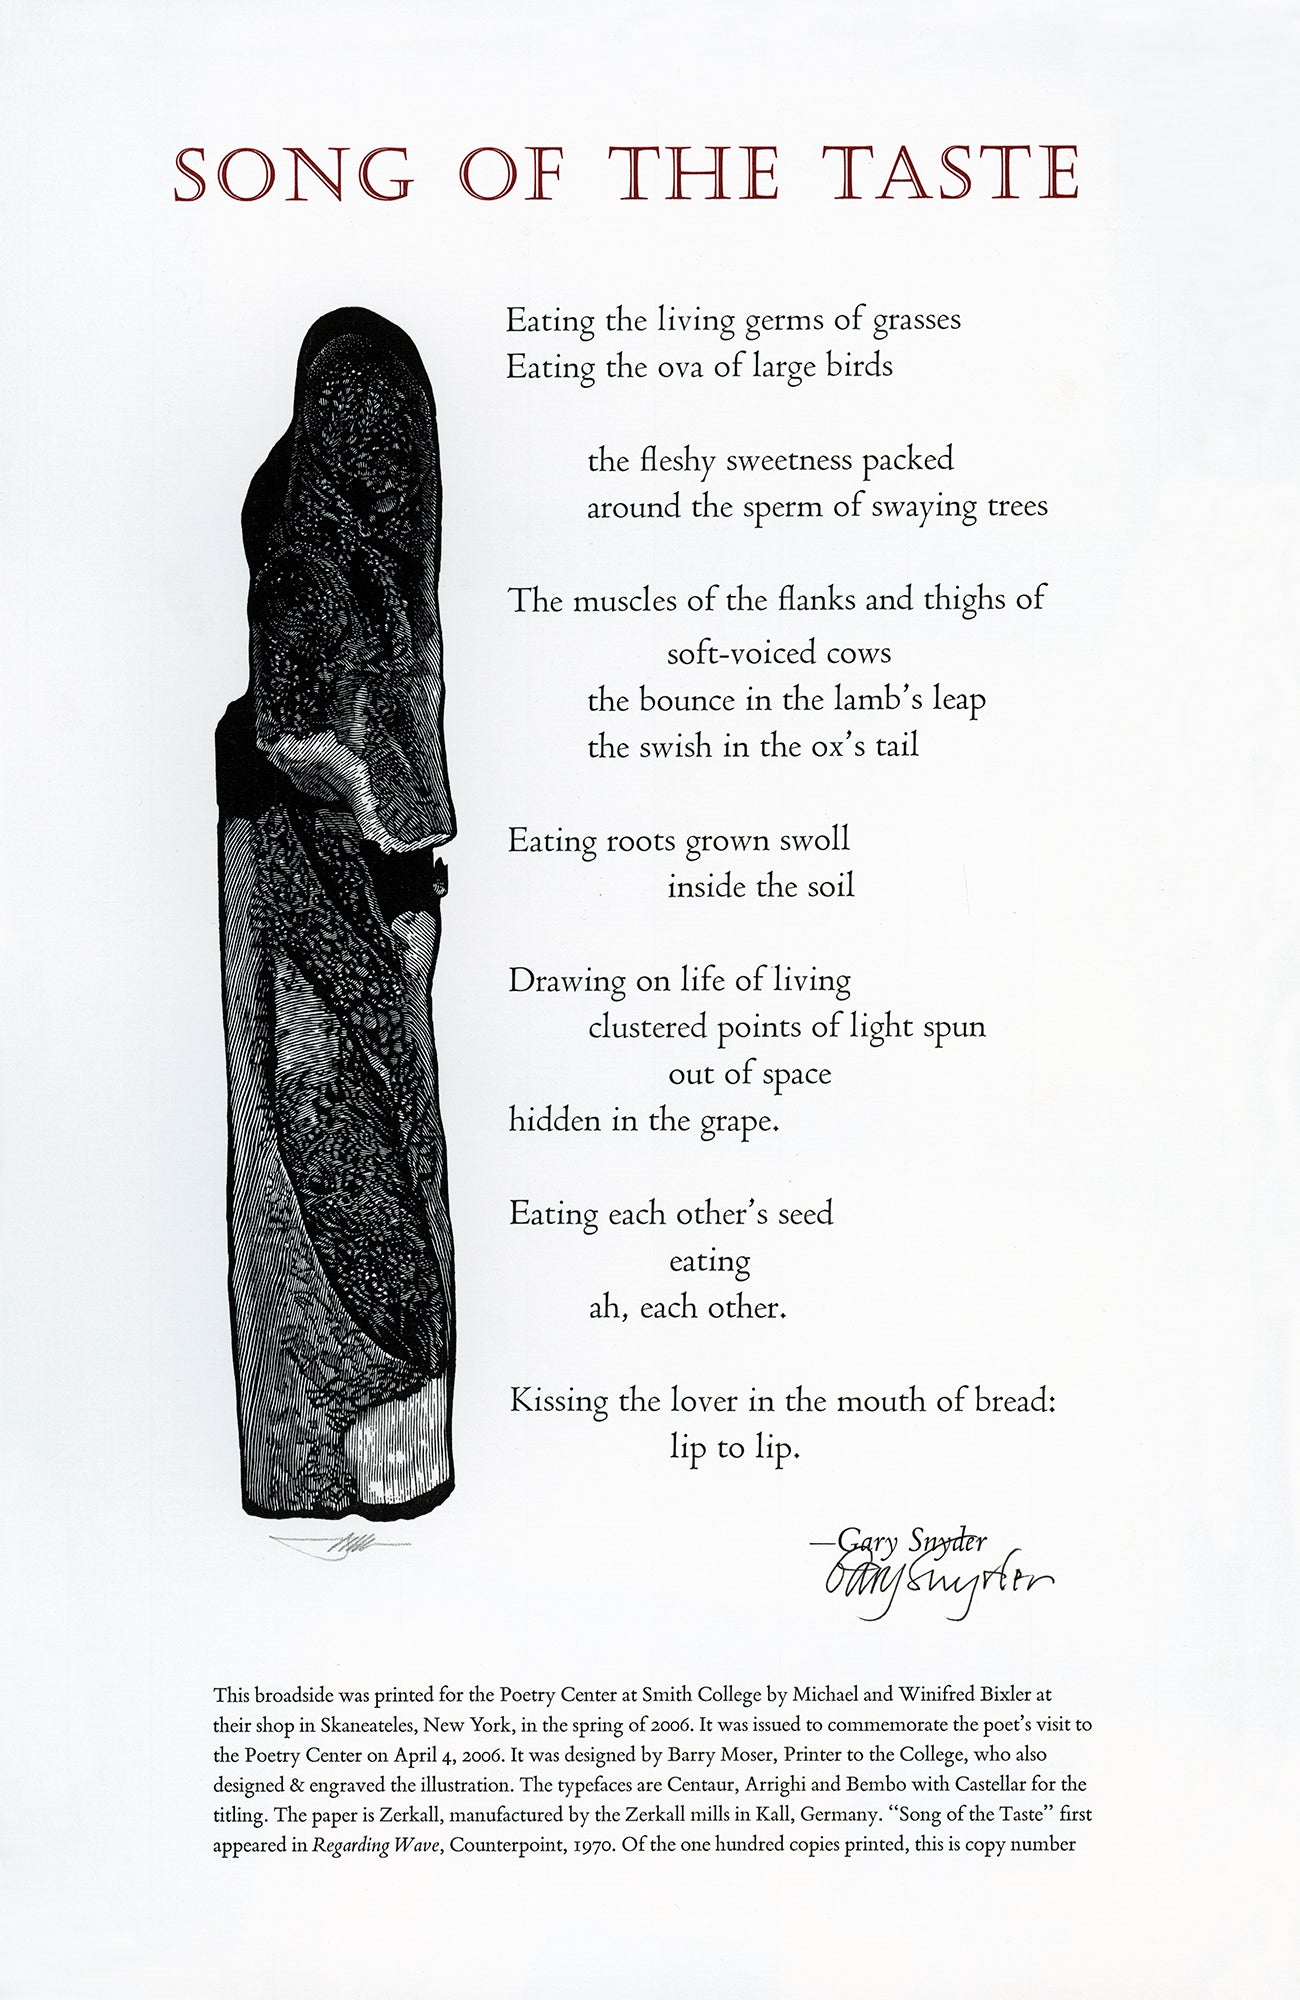 SONG OF THE TASTE
Eating the living germs of grasses
Eating the ova of large birds
the fleshy sweetness packed
around the sperm of swaying trees
The muscles of the flanks and thighs of
soft-voiced cows
the bounce in the lamb’s leap
the swish in the ox’s tail
Eating roots grown swoll
inside the soil
Drawing on life of living
clustered points of light spun
out of space
hidden in the grape.
Eating each other’s seed
eating
ah, each other.
Kissing the lover in the mouth of bread:
lip to lip.
—Gary Snyder
Gary Snyder
This broadside was printed for the Poetry Center at Smith College by Michael and Winifred Bixler at
their shop in Skaneateles, New York, in the spring of 2006. It was issued to commemorate the poet’s visit to
the Poetry Center on April 4, 2006. It was designed by Barry Moser, Printer to the College, who also
designed & engraved the illustration. The typefaces are Centaur, Arrighi and Bembo with Castellar for the
titling. The paper is Zerkall, manufactured by the Zerkall mills in Kall, Germany. “Song of the Taste” first
appeared in Regarding Wave, Counterpoint, 1970. Of the one hundred copies printed, this is copy number